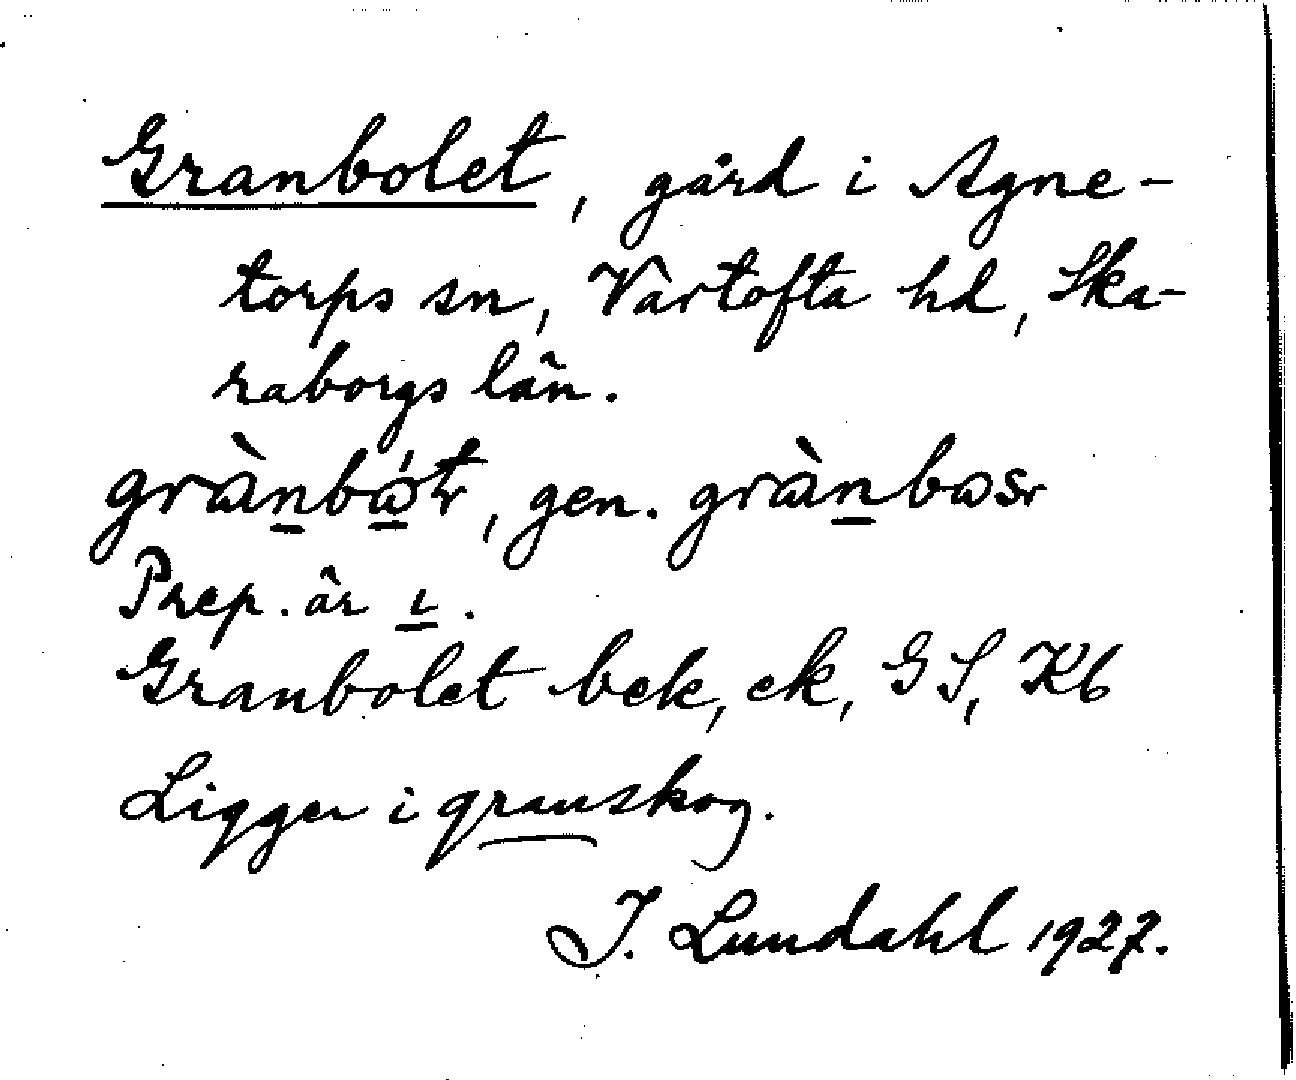 Granbolet, gård i Agne-
torps sn, Vartofta hd, Ska-
raborgs län.
gen.
Prep. är ɩ.
Granbolet bek, ek, GS, Kb
Ligger i granskog.
I. Lundahl 1927.